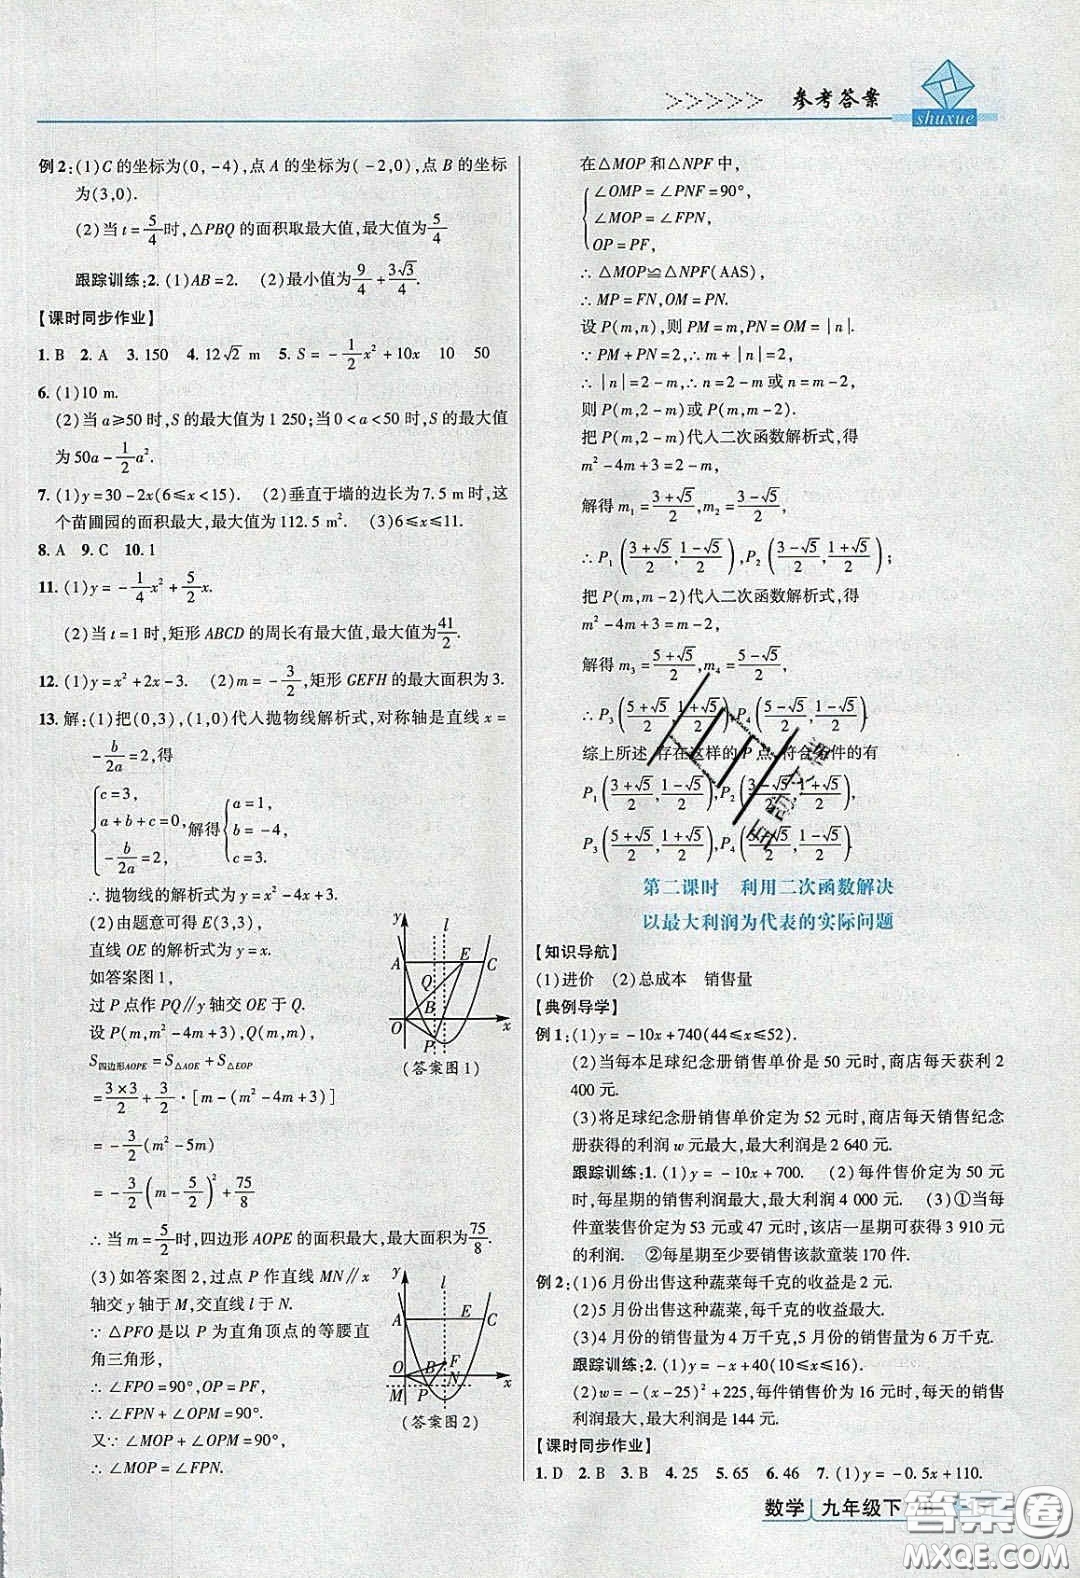 参考答案
shuxue
例2:(1)C的坐标为(0,-4),点A的坐标为(-2,0),点B的坐标
为(3,0).
(2)当t=5/4时,△PBQ的面积取最大值,最大值为5/4
跟踪训练:2.(1)AB=2. (2)最小值为9/4+3√3/4.
【课时同步作业】
1.B 2.A 3.150 4.12√2 m 5.S=-1/2x²+10x 10 50
6.(1)10 m.
(2)当a≥50时,S的最大值为1 250;当0<a<50时,S的最大值
为50a-1/2a².
7.(1)y=30-2x(6≤x<15). (2)垂直于墙的边长为7.5 m时,这
个苗圃园的面积最大,最大值为112.5 m². (3)6≤x≤11.
8.A 9.C 10.1
11.(1)y=-1/4x²+5/2x.
(2)当t=1时,矩形ABCD的周长有最大值,最大值为41/2.
12.(1)y=x²+2x-3. (2)m=-3/2,矩形GEFH的最大面积为3.
13.解:(1)把(0,3),(1,0)代入抛物线解析式,对称轴是直线x=
-b/2a=2,得
{c=3, a+b+c=0, -b/2a=2, 解得{a=1, b=-4, c=3.
∴抛物线的解析式为y=x²-4x+3.
(2)由题意可得E(3,3),
直线OE的解析式为y=x.
如答案图1,
过P点作PQ∥y轴交OE于Q.
设P(m,m²-4m+3),Q(m,m),
S四边形AOPE=S△AOE+S△EOP
=3×3/2+3/2·[m-(m²-4m+3)]
=-3/2(m²-5m)
=-3/2(m-5/2)²+75/8
∴当m=5/2时,四边形AOPE的面积最大,最大面积为75/8.
(3)如答案图2,过点P作直线MN∥x
轴交y轴于M,交直线l于N.
∵△PFO是以P为直角顶点的等腰直
角三角形,
∴∠FPO=90°,OP=PF.
∴∠FPN+∠OPM=90°.
又∵∠MOP+∠OPM=90°,
∴∠MOP=∠FPN.
y l A E C Q B O P x
(答案图1)
y l A E C O B F N M P x
(答案图2)
在△MOP和△NPF中,
{∠OMP=∠PNF=90°,
∠MOP=∠FPN,
OP=PF,
∴△MOP≌△NPF(AAS),
∴MP=FN,OM=PN.
设P(m,n),则PM=m,PN=OM=|n|.
∵PM+PN=2,∴m+|n|=2,
∴|n|=2-m,∴n=2-m或n=m-2,
则P(m,2-m)或P(m,m-2).
把P(m,2-m)代入二次函数解析式,得
m²-4m+3=2-m,
解得m₁=(3+√5)/2,m₂=(3-√5)/2,
∴P₁((3+√5)/2,(1-√5)/2),P₂((3-√5)/2,(1+√5)/2);
把P(m,m-2)代入二次函数解析式,得
m²-4m+3=m-2,
解得m₃=(5+√5)/2,m₄=(5-√5)/2,
∴P₃((5+√5)/2,(1+√5)/2),P₄((5-√5)/2,(1-√5)/2).
综上所述 存在这样的P点 符合条件的有
P₁((3+√5)/2,(1-√5)/2),P₂((3-√5)/2,(1+√5)/2),
P₃((5+√5)/2,(1+√5)/2),P₄((5-√5)/2,(1-√5)/2)
第二课时 利用二次函数解决
以最大利润为代表的实际问题
【知识导航】
(1)进价 (2)总成本 销售量
【典例导学】
例1:(1)y=-10x+740(44≤x≤52).
(2)当每本足球纪念册销售单价是50元时,商店每天获利2
400元.
(3)将足球纪念册销售单价定为52元时,商店每天销售纪念
册获得的利润w元最大,最大利润是2 640元.
跟踪训练:1.(1)y=-10x+700. (2)每件售价定为50元
时,每星期的销售利润最大,最大利润4 000元. (3)①当每
件童装售价定为53元或47元时,该店一星期可获得3 910元
的利润. ②每星期至少要销售该款童装170件.
例2:(1)6月份出售这种蔬菜每千克的收益是2元.
(2)5月份出售这种蔬菜,每千克的收益最大.
(3)4月份的销售量为4万千克,5月份的销售量为6万千克.
跟踪训练:2.(1)y=-x+40(10≤x≤16).
(2)w=-(x-25)²+225,每件销售价为16元时,每天的销售
利润最大,最大利润是144元.
【课时同步作业】
1.D 2.B 3.B 4.25 5.65 6.46 7.(1)y=-0.5x+110.
数学 九年级下
答案圈
MXQE.COM